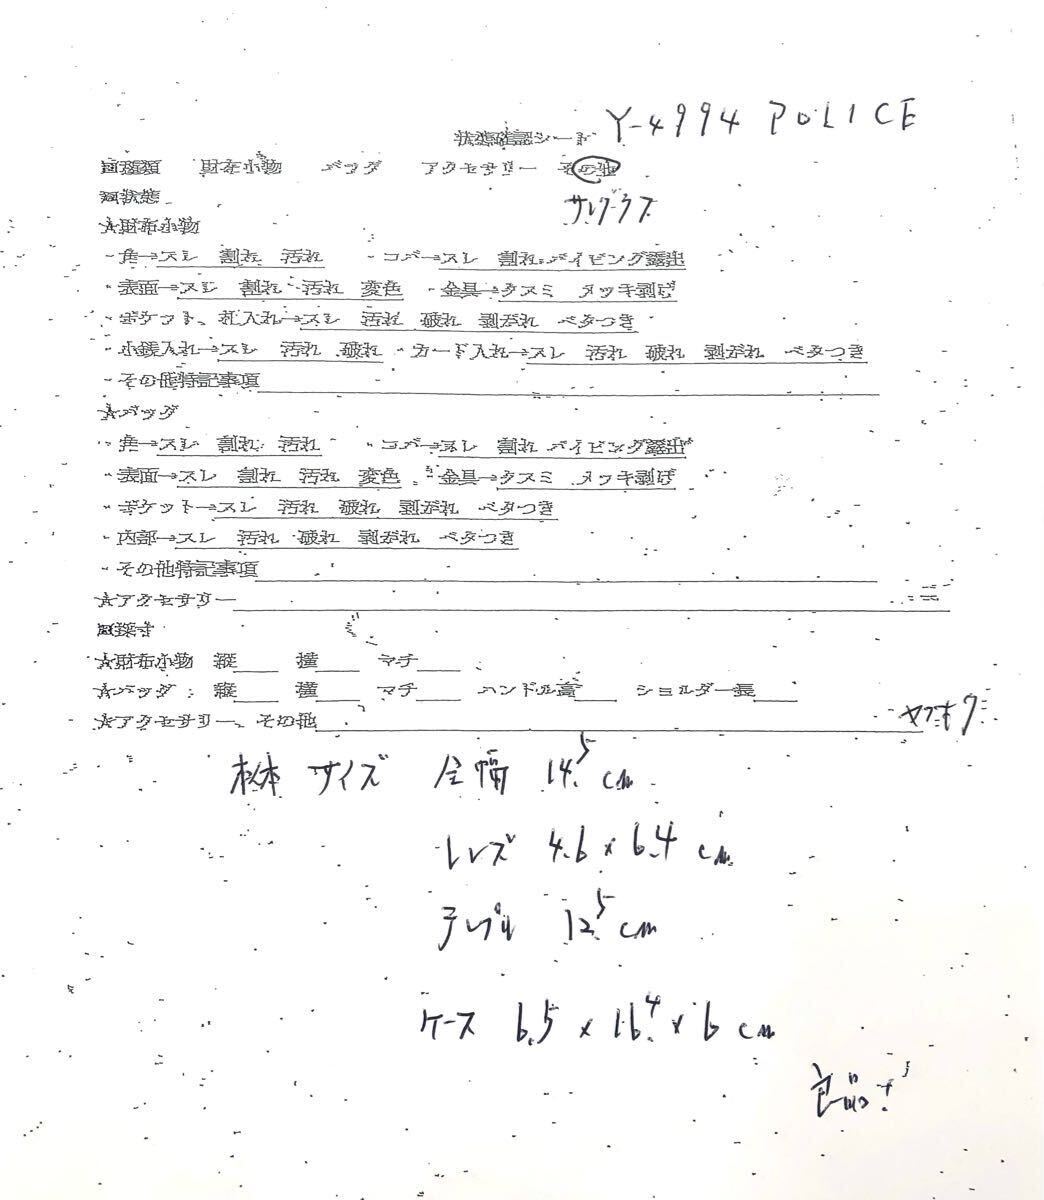 状態確認シート Y-4994 POLICE
■種類 財布小物 バッグ アクセサリー その他
サングラス
■状態
★財布小物
・角→スレ 割れ 汚れ ・コバ→スレ 割れ パイピング露出
・表面→スレ 割れ 汚れ 変色 ・金具→クスミ メッキ剥げ
・ポケット、札入れ→スレ 汚れ 破れ 剥がれ ベタつき
・小銭入れ→スレ 汚れ 破れ ・カード入れ→スレ 汚れ 破れ 剥がれ ベタつき
・その他特記事項
★バッグ
・角→スレ 割れ 汚れ ・コバ→スレ 割れ パイピング露出
・表面→スレ 割れ 汚れ 変色 ・金具→クスミ メッキ剥げ
・ポケット→スレ 汚れ 破れ 剥がれ ベタつき
・内部→スレ 汚れ 破れ 剥がれ ベタつき
・その他特記事項
★アクセサリー
■採寸
★財布小物 縦 横 マチ
★バッグ 縦 横 マチ ハンドル高 ショルダー長
★アクセサリー、その他
ヤフオク
本体 サイズ 全幅 14.5 cm
レンズ 4.6 × 6.4 cm
テンプル 12.5 cm
ケース 6.5 × 16.4 × 6 cm
良品です